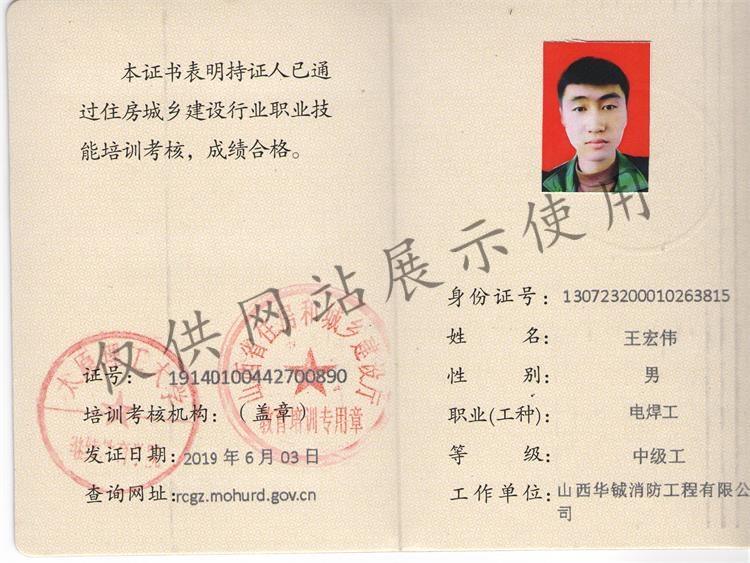 本证书表明持证人已通
过住房城乡建设行业职业技
能培训考核，成绩合格。
证号： 19140100442700890
培训考核机构：（盖章）
发证日期：2019 年 6 月 03 日
查询网址:rcgz.mohurd.gov.cn
太原理工大学
继续教育学院
山西省住房和城乡建设厅
教育培训专用章
仅供网站展示使用
身份证号：130723200010263815
姓 名： 王宏伟
性 别： 男
职业(工种)： 电焊工
等 级： 中级工
工作单位:山西华铖消防工程有限公
司